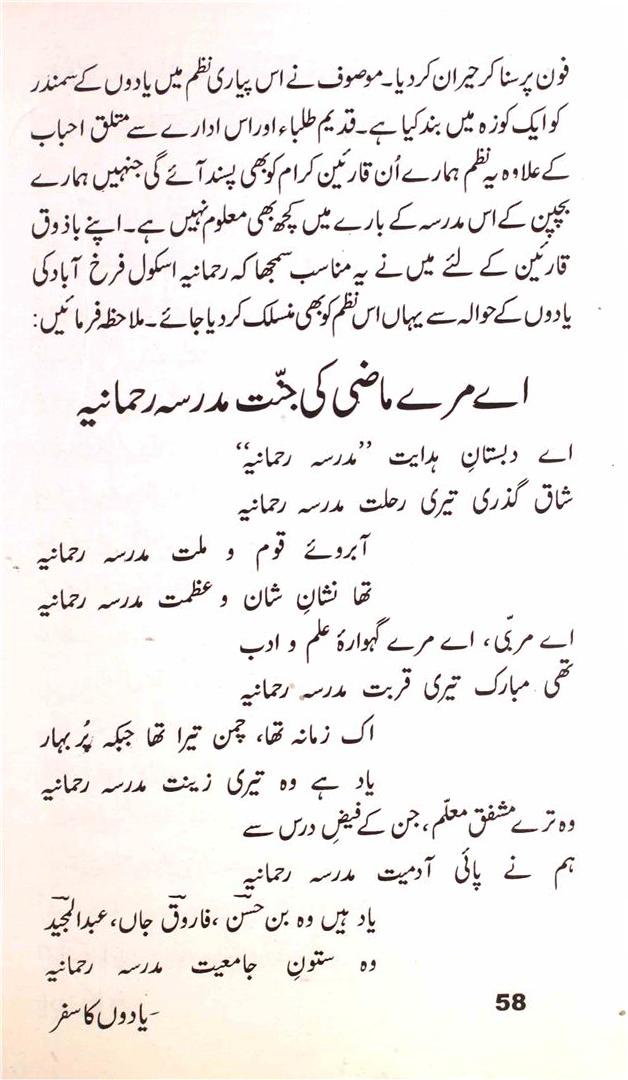 فون پر سنا کر حیران کر دیا۔ موصوف نے اس پیاری نظم میں یادوں کے سمندر
کو ایک کوزہ میں بند کیا ہے۔ قدیم طلباء اور اس ادارے سے متعلق احباب
کے علاوہ یہ نظم ہمارے اُن قارئین کرام کو بھی پسند آئے گی جنہیں ہمارے
بچپن کے اس مدرسہ کے بارے میں کچھ بھی معلوم نہیں ہے۔ اپنے باذوق
قارئین کے لئے میں نے یہ مناسب سمجھا کہ رحمانیہ اسکول فرخ آباد کی
یادوں کے حوالہ سے یہاں اس نظم کو بھی منسلک کر دیا جائے۔ ملاحظہ فرمائیں:
اے مرے ماضی کی جنّت مدرسہ رحمانیہ
اے دبستانِ ہدایت ”مدرسہ رحمانیہ“
شاق گذری تیری رحلت مدرسہ رحمانیہ
آبروئے قوم و ملت مدرسہ رحمانیہ
تھا نشانِ شان و عظمت مدرسہ رحمانیہ
اے مربّی، اے مرے گہوارۂ علم و ادب
تھی مبارک تیری قربت مدرسہ رحمانیہ
اک زمانہ تھا، چمن تیرا تھا جبکہ پُر بہار
یاد ہے وہ تیری زینت مدرسہ رحمانیہ
وہ ترے مشفق معلّم، جن کے فیضِ درس سے
ہم نے پائی آدمیت مدرسہ رحمانیہ
یاد ہیں وہ بن حسنؔ، فاروقؔ جاں، عبدالمجیدؔ
وہ ستونِ جامعیت مدرسہ رحمانیہ
58
۔یادوں کا سفر